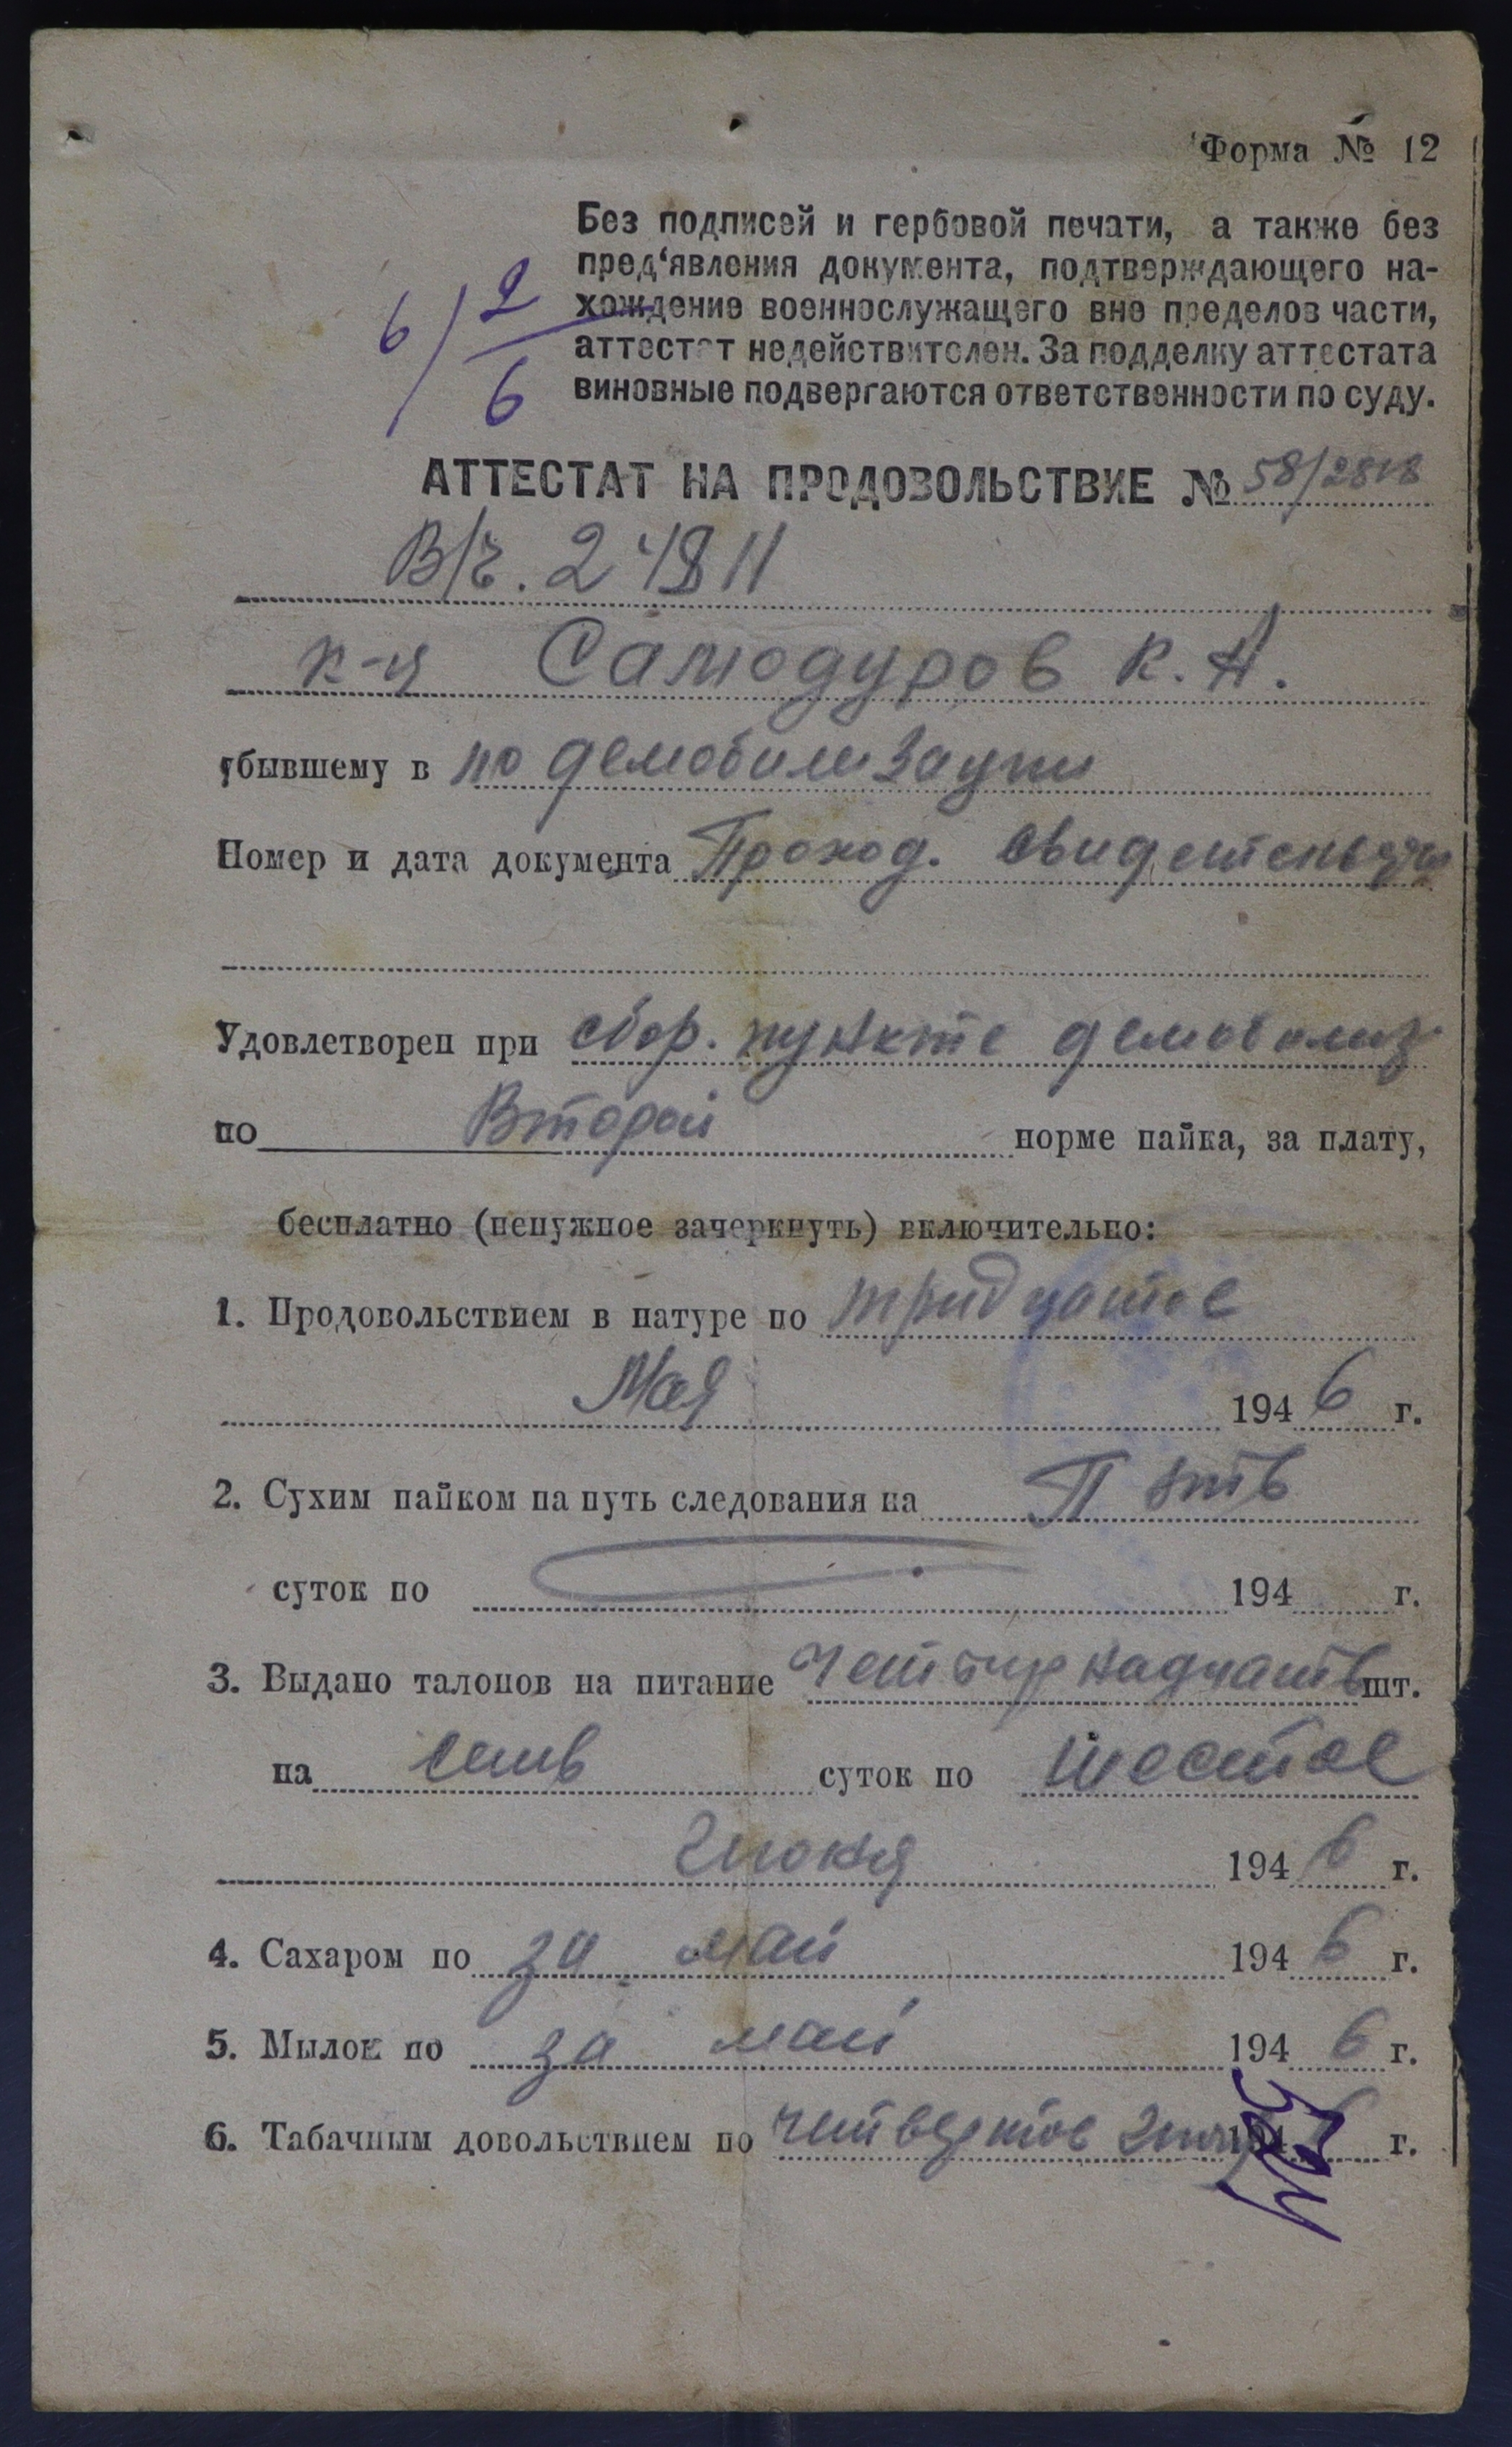 Форма № 12
Без подписей и гербовой печати, а также без
пред‘явления документа, подтверждающего на-
хождение военнослужащего вне пределов части,
аттестат недействителен. За подделку аттестата
виновные подвергаются ответственности по суду.
6/2/6
АТТЕСТАТ НА ПРОДОВОЛЬСТВИЕ № 58/2818
В/ч. 24811
к-я Самодуров К. А.
убывшему в по демобилизации
Номер и дата документа Проход. свидетельство
Удовлетворен при сбор. пункте демобилиз
по Второй норме пайка, за плату,
бесплатно (ненужное зачеркнуть) включительно:
1. Продовольствием в натуре по тридцатое
Мая 1946 г.
2. Сухим пайком на путь следования на Пять
суток по 194 г.
3. Выдано талонов на питание Четырнадцать шт.
на семь суток по шестое
Июня 1946 г.
4. Сахаром по за май 1946 г.
5. Мылом по за май 1946 г.
6. Табачным довольствием по четвертое Июня 1946 г.